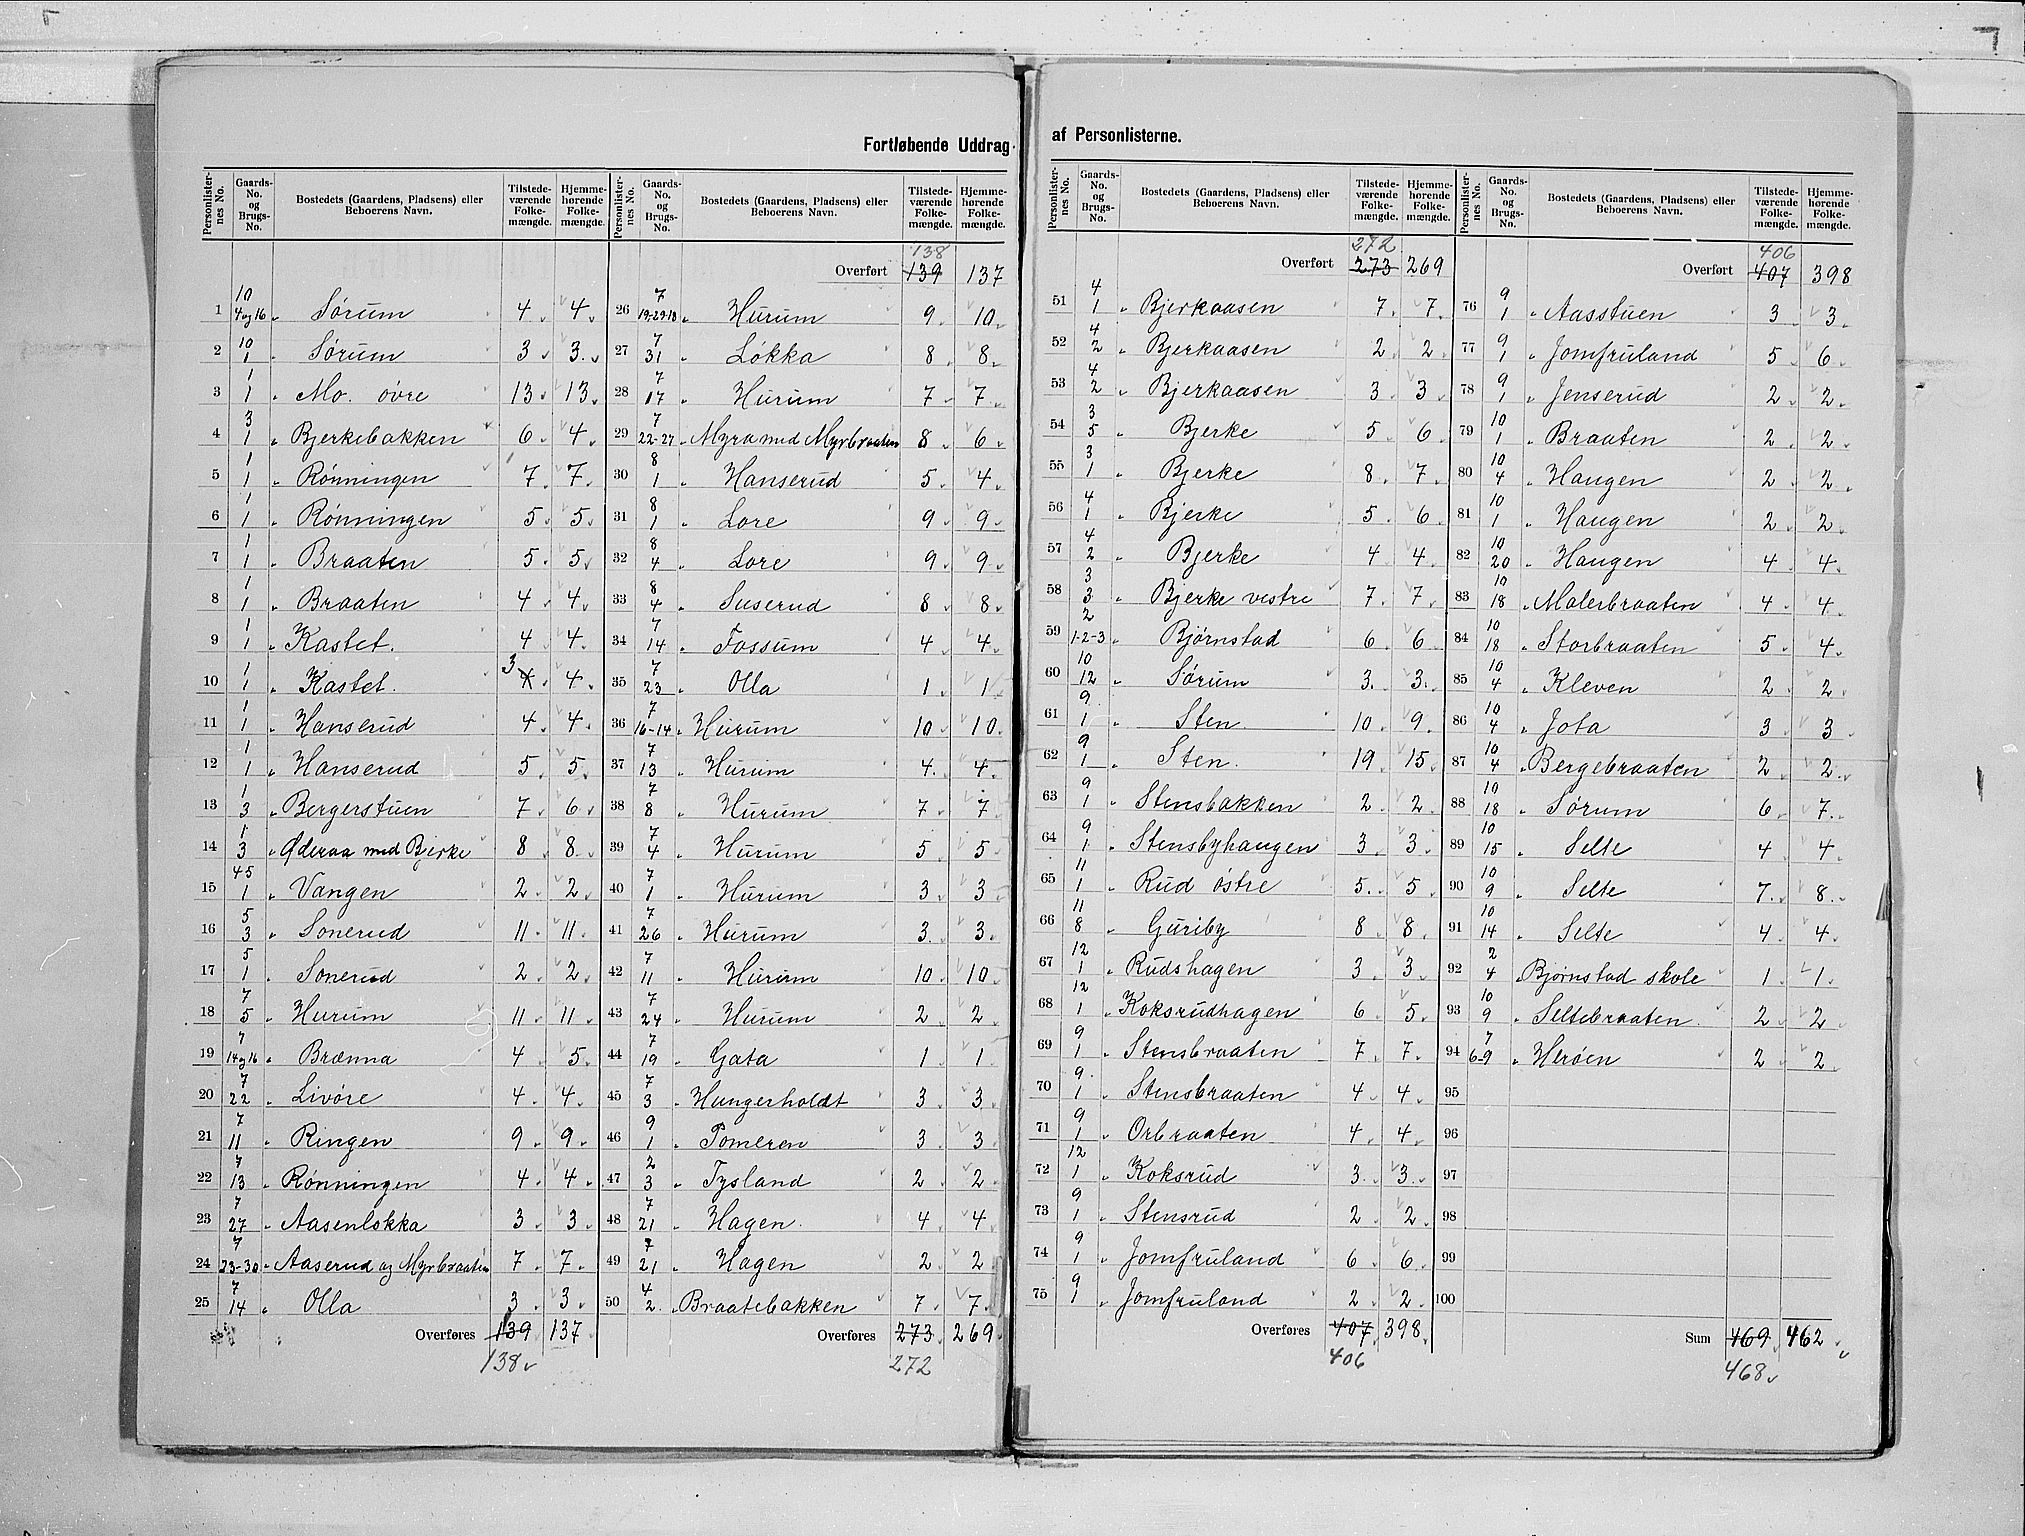 Fortløbende Uddrag af Personlisterne.
Personlisternes No. | Gaards-No. og Brugs-No. | Bostedets (Gaardens, Pladsens) eller Beboerens Navn. | Tilstedeværende Folkemængde. | Hjemmehørende Folkemængde.
1 | 10 / 4 og 16 | Sørum | 4 | 4
2 | 10 / 1 | Sørum | 3 | 3
3 | 1 / 1 | Mo. övre | 13 | 13
4 | 3 / 1 | Bjerkebakken | 6 | 4
5 | 1 / 1 | Rönningen | 7 | 7
6 | 1 / 1 | Rönningen | 5 | 5
7 | 1 / 1 | Braaten | 5 | 5
8 | 1 / 1 | Braaten | 4 | 4
9 | 1 / 1 | Kastet. | 4 | 4
10 | 1 / 1 | Kastet. | 3 4 | 4
11 | 1 / 1 | Hanserud | 4 | 4
12 | 1 / 1 | Hanserud | 5 | 5
13 | 1 / 3 | Bergerstuen | 7 | 6
14 | 1 / 3 | Øderaa med Bjerke | 8 | 8
15 | 45 / 1 | Vangen | 2 | 2
16 | 5 / 3 | Sonerud | 11 | 11
17 | 5 / 1 | Sonerud | 2 | 2
18 | 7 / 5 | Hurum | 11 | 11
19 | 7 / 14 og 16 | Brænna | 4 | 5
20 | 7 / 22 | Livöre | 4 | 4
21 | 7 / 11 | Ringen | 9 | 9
22 | 7 / 13 | Rönningen | 4 | 4
23 | 7 / 27 | Aasenlökka | 3 | 3
24 | 7 / 23-30 | Aaserud og Myrbraaten | 7 | 7
25 | 7 / 14 | Olla | 3 | 3
Overføres 139 137
138
Personlisternes No. | Gaards-No. og Brugs-No. | Bostedets (Gaardens, Pladsens) eller Beboerens Navn. | Tilstedeværende Folkemængde. | Hjemmehørende Folkemængde.
138
Overført 139 137
26 | 7 / 19-29-18 | Hurum | 9 | 10
27 | 7 / 31 | Lökka | 8 | 8
28 | 7 / 17 | Hurum | 7 | 7
29 | 7 / 22-27 | Myra med Myrbraaten | 8 | 6
30 | 8 / 1 | Hanserud | 5 | 4
31 | 8 / 1 | Lore | 9 | 9
32 | 8 / 4 | Lore | 9 | 9
33 | 8 / 4 | Suserud | 8 | 8
34 | 7 / 14 | Fossum | 4 | 4
35 | 7 / 23 | Olla | 1 | 1
36 | 7 / 16-14 | Hurum | 10 | 10
37 | 7 / 13 | Hurum | 4 | 4
38 | 7 / 8 | Hurum | 7 | 7
39 | 7 / 4 | Hurum | 5 | 5
40 | 7 / 1 | Hurum | 3 | 3
41 | 7 / 26 | Hurum | 3 | 3
42 | 7 / 11 | Hurum | 10 | 10
43 | 7 / 24 | Hurum | 2 | 2
44 | 7 / 19 | Gata | 1 | 1
45 | 7 / 3 | Hungerholdt | 3 | 3
46 | 9 / 1 | Pomeren | 3 | 3
47 | 2 / 3 | Tysland | 2 | 2
48 | 7 / 21 | Hagen. | 4 | 4
49 | 7 / 21 | Hagen | 2 | 2
50 | 4 / 2 | Braatebakken | 7 | 7
Overføres 273 269
272
Personlisternes No. | Gaards-No. og Brugs-No. | Bostedets (Gaardens, Pladsens) eller Beboerens Navn. | Tilstedeværende Folkemængde. | Hjemmehørende Folkemængde.
272
Overført 273 269
51 | 4 / 1 | Bjerkaasen | 7 | 7
52 | 4 / 2 | Bjerkaasen | 2 | 2
53 | 4 / 2 | Bjerkaasen | 3 | 3
54 | 3 / 5 | Bjerke | 5 | 6
55 | 3 / 1 | Bjerke | 8 | 7
56 | 4 / 1 | Bjerke | 5 | 6
57 | 4 / 2 | Bjerke | 4 | 4
58 | 3 / 3 | Bjerke vestre | 7 | 7
59 | 2 / 1-2-3 | Bjørnstad | 6 | 6
60 | 10 / 12 | Sørum | 3 | 3
61 | 9 / 1 | Sten. | 10 | 9
62 | 9 / 1 | Sten. | 19 | 15
63 | 9 / 1 | Stensbakken | 2 | 2
64 | 9 / 1 | Stensbyhaugen | 3 | 3
65 | 11 / 1 | Rud östre | 5 | 5
66 | 11 / 8 | Guriby | 8 | 8
67 | 12 / 1 | Rudshagen | 3 | 3
68 | 12 / 1 | Koksrudhagen | 6 | 5
69 | 9 / 1 | Stensbraaten | 7 | 7
70 | 9 / 1 | Stensbraaten | 4 | 4
71 | 9 / 1 | Orbraaten | 4 | 4
72 | 12 / 1 | Koksrud | 3 | 3
73 | 9 / 1 | Stensrud | 2 | 2
74 | 9 / 1 | Jomfruland | 6 | 6
75 | 9 / 1 | Jomfruland | 2 | 2
Overføres 407 398
406
Personlisternes No. | Gaards-No. og Brugs-No. | Bostedets (Gaardens, Pladsens) eller Beboerens Navn. | Tilstedeværende Folkemængde. | Hjemmehørende Folkemængde.
406
Overført 407 398
76 | 9 / 1 | Aasstuen | 3 | 3
77 | 9 / 1 | Jomfruland | 5 | 6
78 | 9 / 1 | Jenserud | 2 | 2
79 | 10 / 1 | Braaten | 2 | 2
80 | 10 / 4 | Haugen | 2 | 2
81 | 10 / 1 | Haugen | 2 | 2
82 | 10 / 20 | Haugen | 4 | 4
83 | 10 / 18 | Malerbraaten | 4 | 4
84 | 10 / 18 | Storbraaten | 5 | 4
85 | 10 / 4 | Kleven | 2 | 2
86 | 10 / 4 | Jota | 3 | 3
87 | 10 / 4 | Bergebraaten | 2 | 2
88 | 10 / 18 | Sørum | 6 | 7
89 | 10 / 15 | Selte | 4 | 4
90 | 10 / 9 | Selte | 7 | 8
91 | 10 / 14 | Selte | 4 | 4
92 | 2 / 4 | Bjørnstad skole | 1 | 1
93 | 10 / 9 | Seltebraaten. | 2 | 2
94 | 7 / 6-9 | Heröen | 2 | 2
95
96
97
98
99
100
Sum 469 462
468